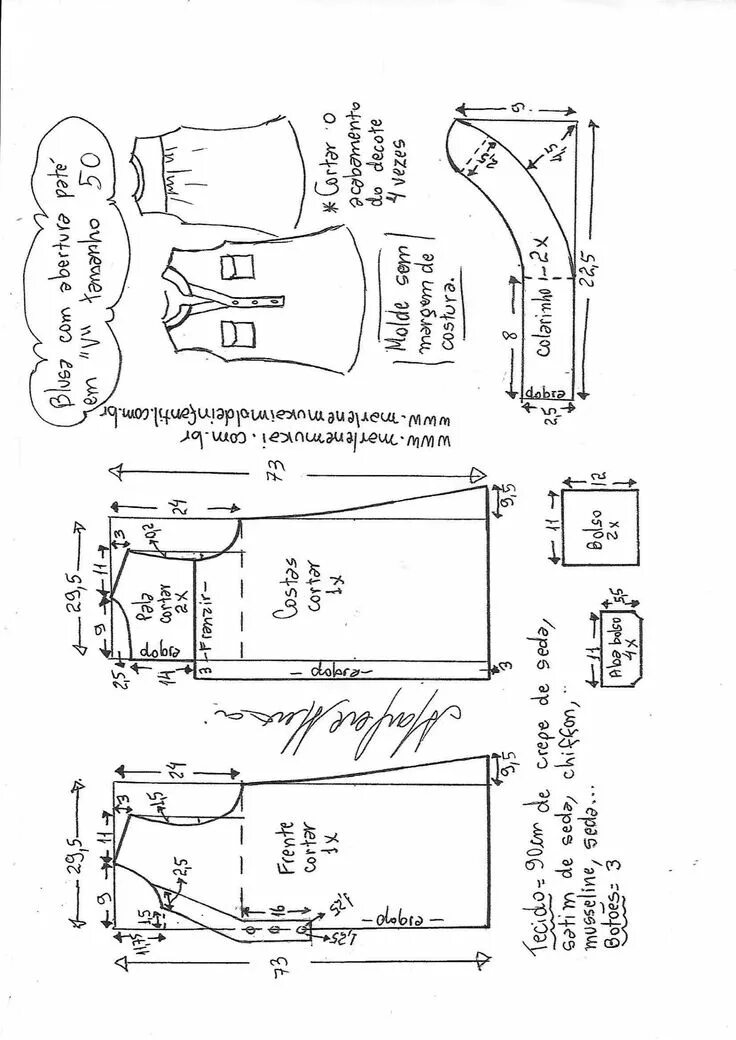 Blusa com abertura patê
em "V" tamanho 50
* Cortar o
acabamento
do decote
4 vezes
Molde sem
margem de
costura.
www.marlenemukai.com.br
www.marlenemukaimoldeinfantil.com.br
9
2,5
4,5
22,5
8
colarinho - 2x
dobra
2,5
73
24
29,5
11
3
9
2,5
14
2,0
Pala
cortar
2x
dobra
3 - Franzir -
Costas
cortar
1x
- dobra -
3
9,5
12
11
Bolso
2x
5,5
11
Aba bolso
4x
Marlene Mukai
24
29,5
11
3
9
1,5
2,5
1,5
11,75
16
1,25
1,25
Frente
cortar
1x
- dobra -
9,5
73
Tecido = 90cm de crepe de seda,
satim de seda, chiffon,
musseline, seda...
Botões = 3